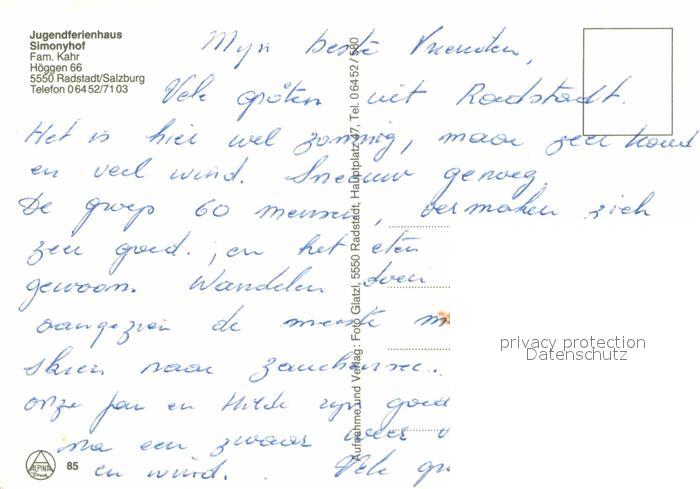 Jugendferienhaus
Simonyhof
Fam. Kahr
Höggen 66
5550 Radstadt/Salzburg
Telefon 06452/7103
Mijn beste Vrienden,
Vele groeten uit Radstadt.
Het is hier wel zonnig, maar zeer koud
en veel wind. Sneeuw genoeg.
De groep 60 mensen, vermaken zich
zeer goed. en het eten
gewoon. Wandelen doen
aangezien de meeste
skien naar Zauchensee..
onze Jan en Hilde zijn goed
na een zwaar weer
en wind. Vele gr
Aufnahme und Verlag: Foto Glatzl, 5550 Radstadt, Hauptplatz 47, Tel. 06452/580
privacy protection
Datenschutz
ALPINA
Druck
85